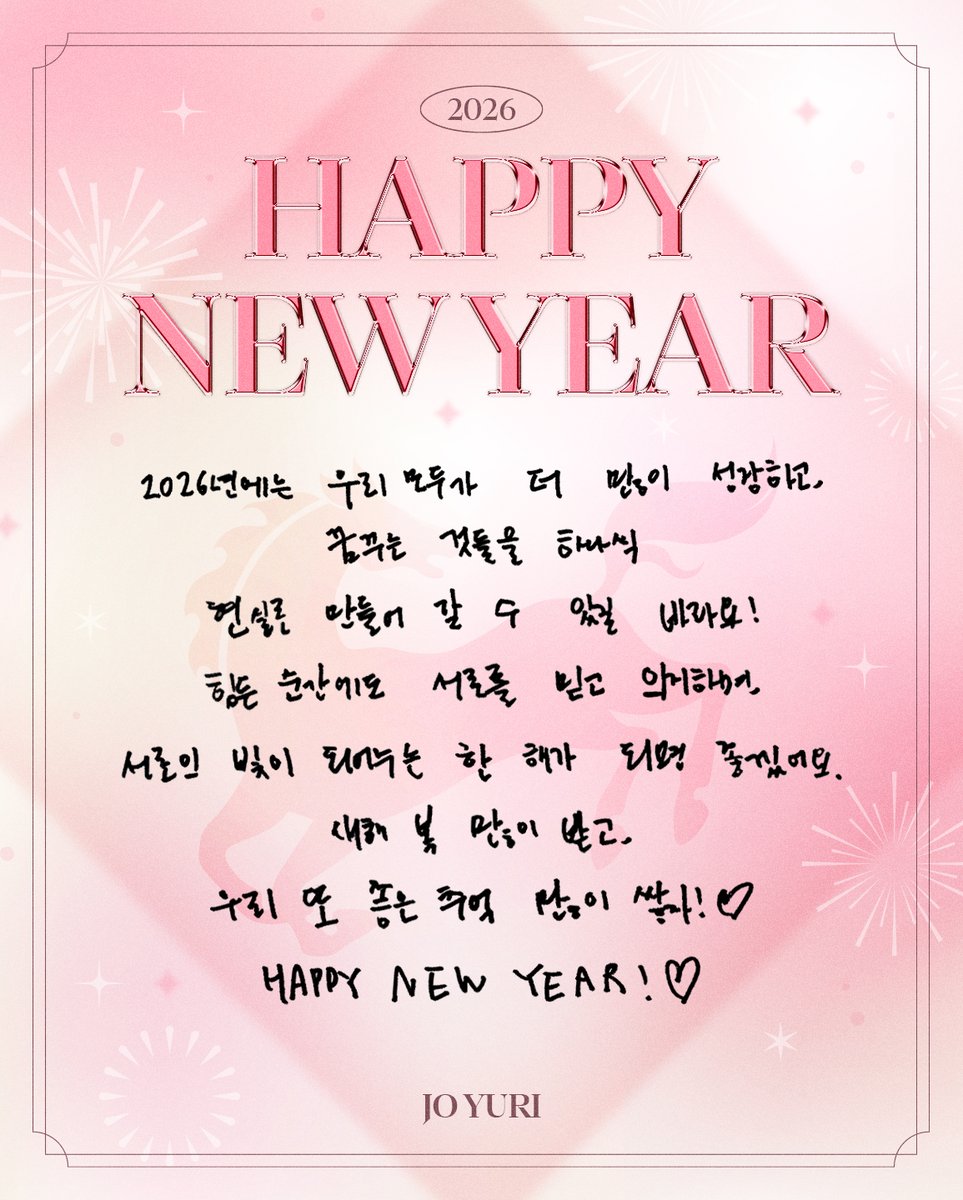 2026
HAPPY
NEW YEAR
2026년에는 우리 모두가 더 많이 성장하고,
꿈꾸는 것들을 하나씩
현실로 만들어 갈 수 있길 바라요!
힘든 순간에도 서로를 믿고 의지하며,
서로의 빛이 되어주는 한 해가 되면 좋겠어요.
새해 복 많이 받고,
우리 또 좋은 추억 많이 쌓자! ♡
HAPPY NEW YEAR! ♡
JO YURI